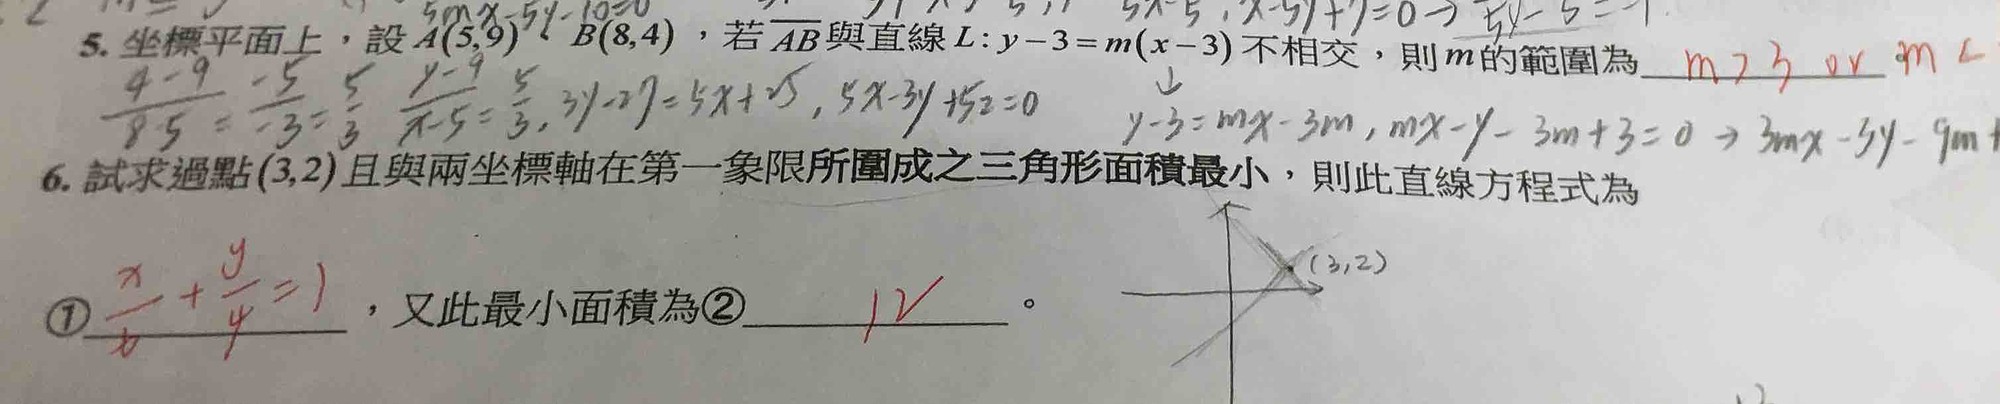 5mx-5y-10=0 5x-5, x-5y+7=0→
5. 坐標平面上，設 A(5,9)、B(8,4)，若 AB 與直線 L: y-3=m(x-3) 不相交，則 m 的範圍為 m>3 or m<
4-9/8-5 = -5/-3 = 5/3 y-9/x-5 = 5/3, 3y-27=5x+25, 5x-3y+52=0 ↓ y-3=mx-3m, mx-y-3m+3=0 → 3mx-3y-9m+
6. 試求過點(3,2)且與兩坐標軸在第一象限所圍成之三角形面積最小，則此直線方程式為
(3,2)
① x/6 + y/4 = 1 ，又此最小面積為② 12 。